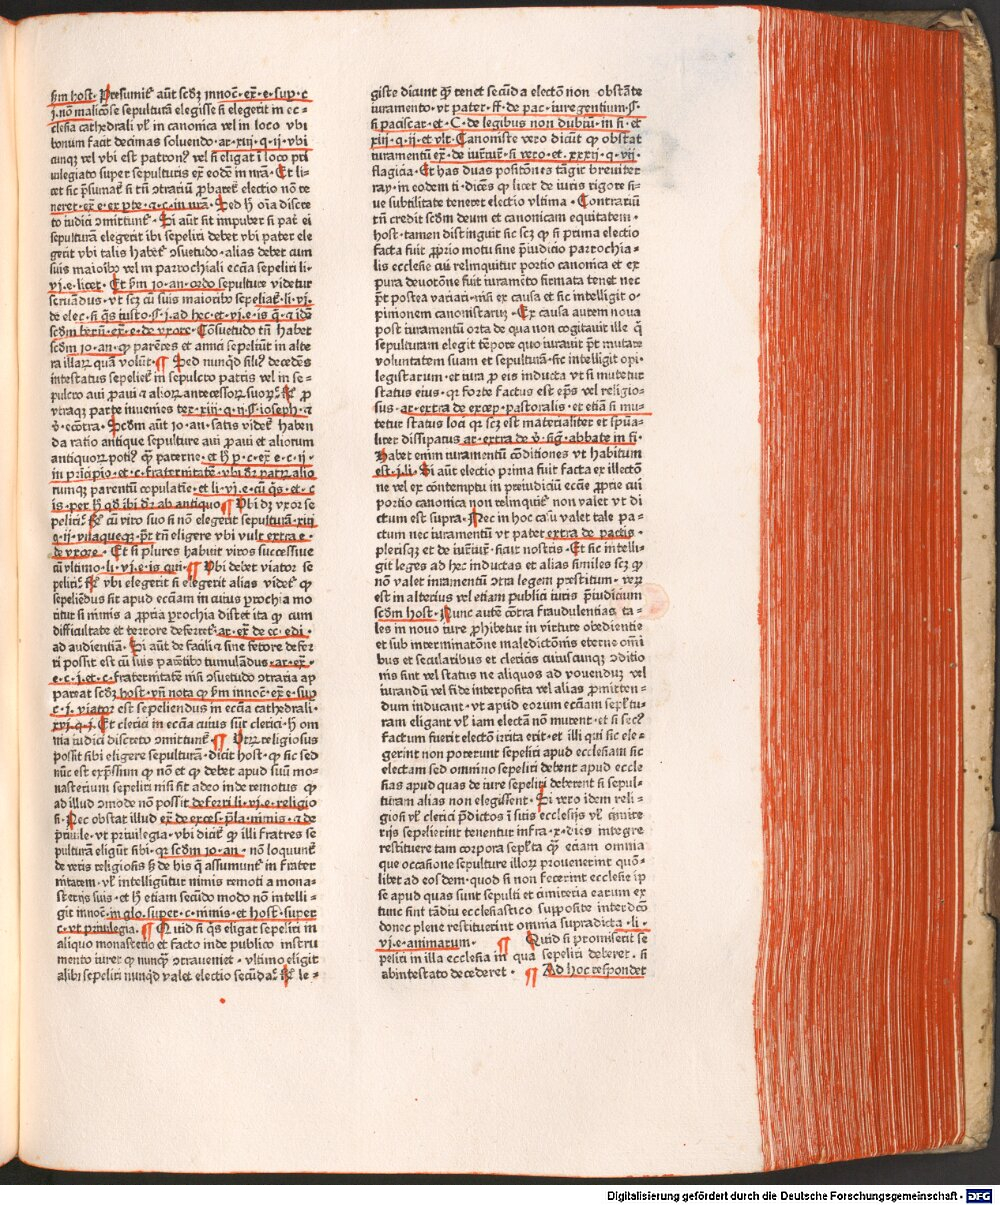 ẜm host. Presumit͛ aūt scd̄ꝫ innoc̄. ex̄. e. sup̱. c
j. nō maliciose sepulturā elegisse si elegerit in ec=
clesia cathedrali vl̓ in canonica vel in loco vbi
bonum facit decimas soluendo. ar. xiij. q. ij. vbi
cūqꝫ vel vbi est patronꝰ vel si eligat ī loco pri
uilegiato super sepulturis ex̄ eodē in nr̄a. Et li-
cet sic p̄sumat͛ si tn̄ ꝯtrariū ꝓbaret͛ electio nō te
neret. ex̄. e. ex pte. q. c. in nr̄a. Sed h̄ oīa discre
to iudici ꝯmittunt͛. Si aūt sit impuber si pat̓ ei
sepulturā elegerit ibi sepeliri debet vbi pater ele
gerit vbi talis habet͛ ꝯsuetudo. alias debet cum
suis maioribꝰ vel in parrochiali ecc̄ia sepeliri li.
vj. e. licet. Et ẜm io. an. ordo sepulture videtur
seruādus. vt scꝫ cū suis maioribꝰ sepeliat͛. li. vj.
de elec. si q̄s iusto. §. j. ad hec. et. vj. e. is q̄. ⁊ idē
scd̄m bern̄. ex̄. e. de vxore. Cōsuetudo tn̄ habet
scd̄m io. an. ꝙ parētes et amici sepeliūt in alte
ra illaꝝ quā volūt. ¶ Sed nunqd̓ filiꝰ decedēs
intestatus sepeliet͛ in sepulcro patris vel in se=
pulcro aui ꝓaui ⁊ alioꝝ antecessoꝝ suoꝝ. ꝶ. ꝓ
vtraqꝫ parte inuenies ter. xiij. q. ij. §. ioseph. ⁊
v̓. ecōtra. Scd̄m aūt io. an. satis videt͛ haben
da ratio antique sepulture aui ꝓaui et aliorum
antiquoꝝ potiꝰ q̄ꝫ paterne. et h̄ p. c. ex̄. e. c. ij.
in prīcipio. et. c. fraternitatē. vbi dr̄ patꝝ alio
rumqꝫ parentū copulatiē. et li. vj. e. cū q̄s. et. c
is. per h̄ qd̓ ibi dr̄ ab antiquo ¶ Vbi dꝫ vxor se
peliri. ꝶ. cū viro suo si nō elegerit sepulturā. xiij
q. ij. vnaqueqꝫ. p̄t tn̄ eligere vbi vult. extra e.
de vxore. Et si plures habuit viros successiue
cū vltimo. li. vj. e. is qui. ¶ Vbi debet viator se
peliri. ꝶ. vbi elegerit si elegerit alias videt͛ ꝙ
sepeliēdus sit apud ecc̄iam in cuius ꝑrochia mo
ritur si nimis a ꝓpria ꝑrochia distet ita ꝙ cum
difficultate et terrore deferret͛. ar. ex̄. de ec. edi.
ad audientiā. Si aūt de facili ⁊ sine fetore defer
ri possit est cū suis parētibꝰ tumulādus. ar. ex̄.
e. c. j. et. c. fraternitatē nisi ꝯsuetudo ꝯtraria ap
pareat scd̄ꝫ host. vn̄ nota ꝙ ẜm innoc̄. ex̄. e. sup̱
c. j. viator est sepeliendus in ecc̄ia cathedrali.
xvj. q. j. Et clerici in ecc̄ia cuius sūt clerici. h̄ om
nia iudici discreto ꝯmittunt͛ ¶ Vtꝝ religiosus
possit sibi eligere sepulturā. dicit host. ꝙ sic sed
nūc est exp̄ssum ꝙ nō et ꝙ debet apud suū mo=
nasterium sepeliri nisi sit adeo inde remotus ꝙ
ad illud ꝯmode nō possit deferri li. vj. e. religio
si. Nec obstat illud ex̄. de exces. p̄la. nimis. ⁊ de
p̄uile. vt priuilegia. vbi dicit͛ ꝙ illi fratres se
pulturā eligūt sibi. qꝛ scd̄m io. an. nō loquunt͛
de veris religiosis ẜꝫ de his q̄ assumunt͛ in frater
nitatem. vl̓ intelligūtur nimis remoti a mona=
sterijs suis. et h̄ etiam secūdo modo nō intelli=
git innoc̄. in glo. super. c. nimis. et host. super
c. vt priuilegia. ¶ Quid si q̄s eligat sepeliri in
aliquo monasterio et facto inde publico instru
mento iuret ꝙ nunqꝫ ꝯtraueniet. vltimo eligit
alibi sepeliri nunqd̓ valet electio secūda. ꝶ. le=
giste dicunt ꝙ tenet secūda electō non obstāte
iuramento. vt pater. ff. de pac. iuregentium. §.
si paciscar. et. C. de legibus non dubiū. in fi. et
xiij. q. ij. et vlt. Canoniste vero dicūt ꝙ obstat
iuramentū ex̄. de iur̄iur̄. si vero. et. xxxij. q. vij.
flagicia. Et has duas positōnes tāgit breuiter
ray. in eodem ti. dicēs ꝙ licet de iuris rigore si=
ue subtilitate teneret electio vltima. Contrariū
tn̄ credit scd̄m deum et canonicam equitatem.
host. tamen distinguit sic scꝫ ꝙ si prima electio
facta fuit ꝓprio motu sine p̄iudicio parrochia=
lis ecclesie cui relinquitur portio canonica et ex
pura deuotōne fuit iuramēto firmata tenet nec
p̄t postea variari. nisi ex causa et sic intelligit o=
pinionem canonistarū. Ex causa autem noua
post iuramentū orta de qua non cogitauit ille q̄
sepulturam elegit tēpore quo iurauit p̄t mutare
voluntatem suam et sepulturā. sic intelligit opi.
legistarum. et iura ꝓ eis inducta vt si mutetur
status eius. qꝛ forte factus est ep̄s vel religio=
sus. ar. extra de excep. pastoralis. et etiā si mu=
tetur status loci qꝛ scꝫ est materialiter et spūa=
liter dissipatus ar. extra de v̓. sig̓. abbate in fi.
Habet enim iuramentū cōditiones vt habitum
est. j. li. Si aūt electio prima fuit facta ex illectō
ne vel ex contemptu in preiudiciū ecc̄ie ꝓprie cui
portio canonica non relinquit͛ non valet vt di
ctum est supra. Nec in hoc casu valet tale pa=
ctum nec iuramentū vt patet extra de pactis.
plerisqꝫ et de iur̄iur̄. sicut nostris. Et sic intelli=
git leges ad hec inductas et alias similes scꝫ ꝙ
nō valet iuramentū ꝯtra legem prestitum. verꝫ
est in alterius vel etiam publici iuris p̄iudicium
scd̄m host. Nunc autē cōtra fraudulentias ta=
les in nouo iure ꝓhibetur in virtute obedientie
et sub interminatōne maledictōnis eterne om̄i
bus et secularibus et clericis cuiuscunqꝫ ꝯditio
nis sint vel status ne aliquos ad vouendum vel
iurandū vel fide interposita vel alias ꝓmitten=
dum inducant. vt apud eorum ecc̄iam sepl̓tu=
ram eligant vl̓ iam electā nō mutent. et si secꝰ
factum fuerit electō irrita erit. et illi qui sic ele=
gerint non poterunt sepeliri apud ecclesiam sic
electam sed omnino sepeliri debent apud eccle
sias apud quas de iure sepeliri deberent si sepul=
turam alias non elegissent. Si vero idem reli=
giosi vl̓ clerici p̄dictos ī suis ecclesijs vl̓ cimite
rijs sepelierint tenentur infra. x. dies integre
restituere tam corpora sepl̓ta q̄ꝫ eciam omnia
que occasione sepulture illoꝝ prouenerint quō=
libet ad eosdem. quod si non fecerint ecclesie ip
se apud quas sunt sepulti et cimiteria earum ex
tunc sint tādiu ecclesiastico supposite interdco̅
donec plene restituerint omnia supradicta. li.
vj. e. animarum. ¶ Quid si promiserit se
peliri in illa ecclesia in qua sepeliri deberet. si
abintestato decederet. ¶ Ad hoc respondet
Digitalisierung gefördert durch die Deutsche Forschungsgemeinschaft - DFG